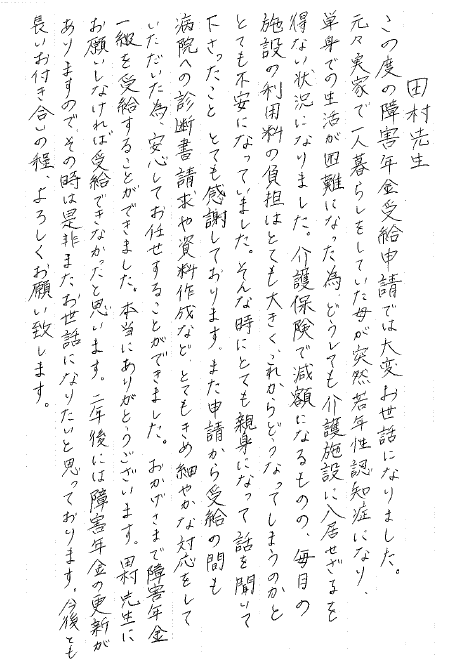 田村先生
この度の障害年金受給申請では大変お世話になりました。
元々実家で一人暮らしをしていた母が突然若年性認知症になり、
単身での生活が困難になった為、どうしても介護施設に入居せざるを
得ない状況になりました。介護保険で減額になるものの、毎日の
施設の利用料の負担はとても大きく、これからどうなってしまうのかと
とても不安になっていました。そんな時にとても親身になって話を聞いて
下さったこと とても感謝しております。また申請から受給の間も
病院への診断書請求や資料作成など、とてもきめ細やかな対応をして
いただいた為、安心してお任せすることができました。おかげさまで障害年金
一級を受給することができました。本当にありがとうございます。田村先生に
お願いしなければ受給できなかったと思います。二年後には障害年金の更新が
ありますので、その時は是非またお世話になりたいと思っております。今後とも
長いお付き合いの程、よろしくお願い致します。